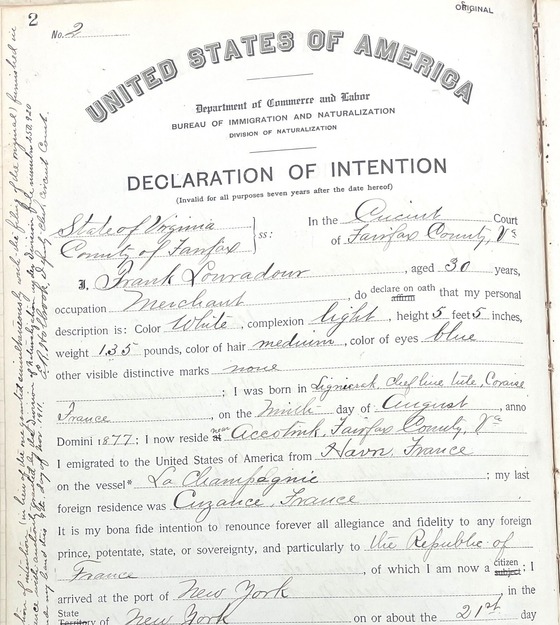 2
No. 2
ORIGINAL
UNITED STATES OF AMERICA
Department of Commerce and Labor
BUREAU OF IMMIGRATION AND NATURALIZATION
DIVISION OF NATURALIZATION
DECLARATION OF INTENTION
(Invalid for all purposes seven years after the date hereof)
State of Virginia
County of Fairfax
ss:
In the Circuit Court
of Fairfax County, Va
I, Frank Louradour, aged 30 years,
occupation Merchant, do declare on oath affirm that my personal
description is: Color White, complexion light, height 5 feet 5 inches,
weight 135 pounds, color of hair medium, color of eyes blue
other visible distinctive marks none
; I was born in
France, on the Ninth day of August, anno
Domini 1877; I now reside at near Accotink, Fairfax County, Va
I emigrated to the United States of America from Havre, France
on the vessel* La Champagnie; my last
foreign residence was Cuzance, France
It is my bona fide intention to renounce forever all allegiance and fidelity to any foreign
prince, potentate, state, or sovereignty, and particularly to the Republic of
France, of which I am now a citizen subject; I
arrived at the port of New York in the
State Territory of New York on or about the 21st day